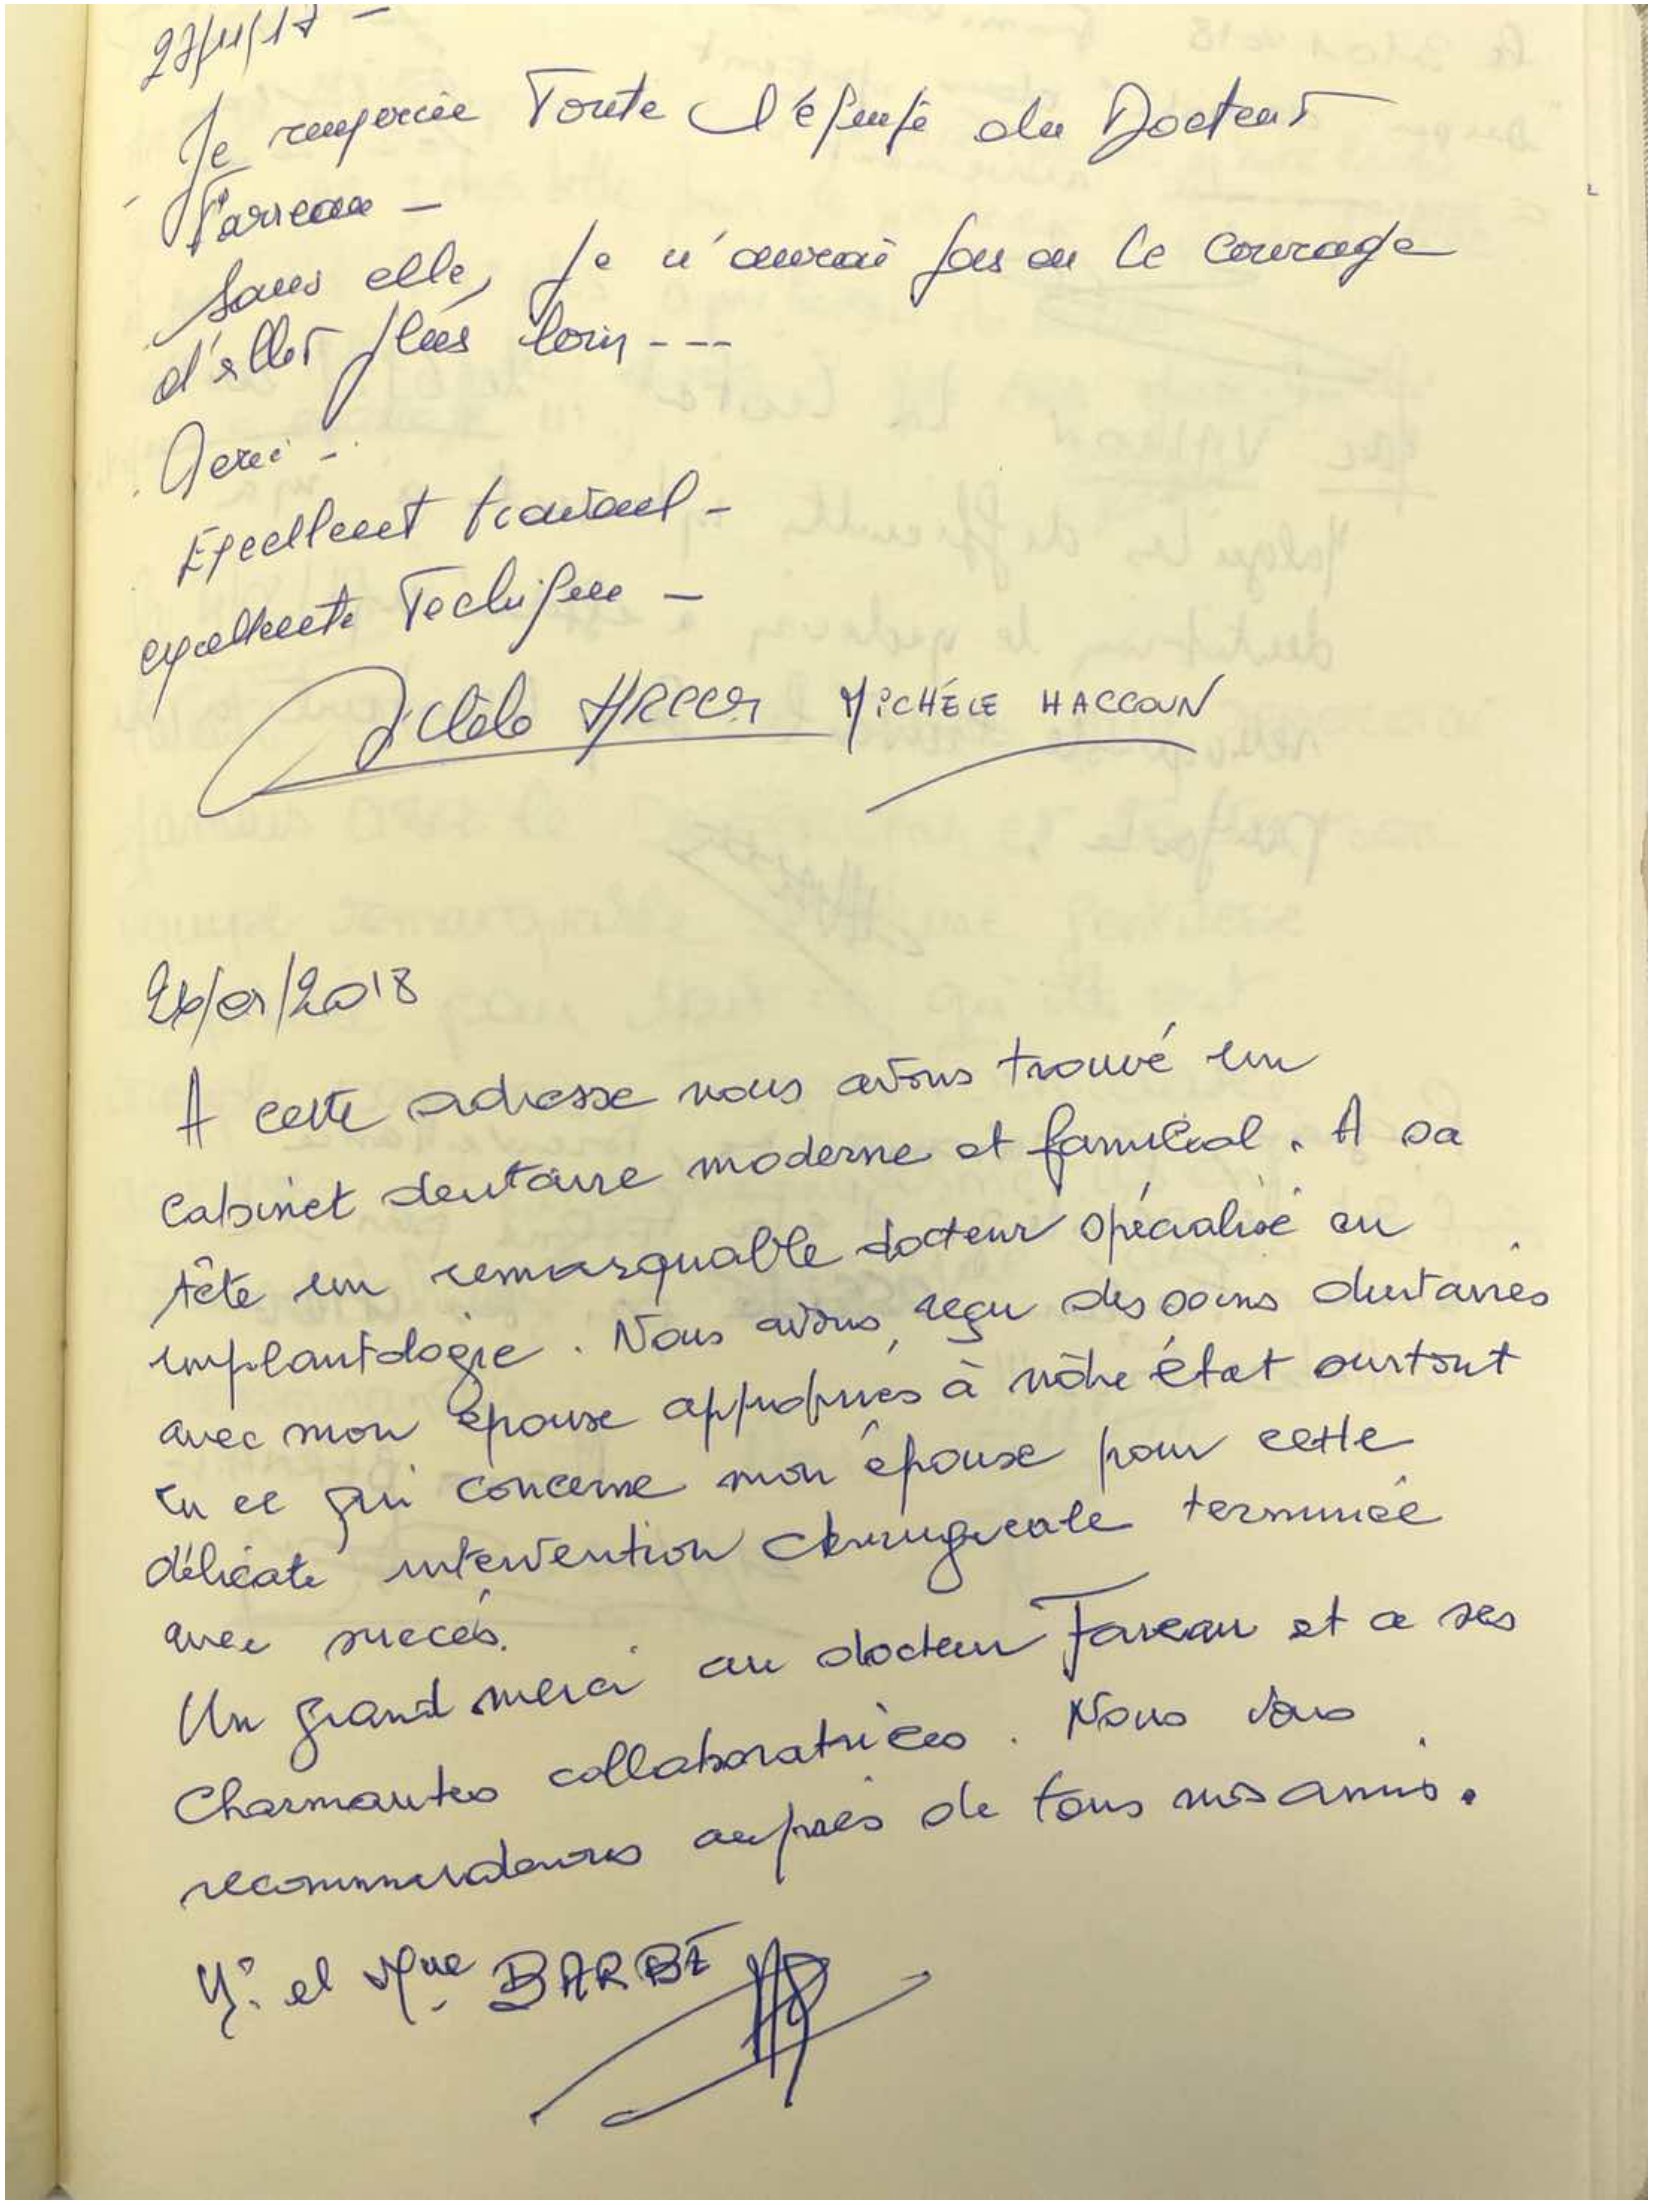 27/11/17 -
Je remercie Toute l'équipe du Docteur
Farreau -
Sans elle, je n'aurai pas eu le courage
d'aller plus loin ---
Merci -
Excellent travail -
excellente Technique -
MICHÈLE HACCOUN
26/01/2018
A cette adresse nous avons trouvé un
cabinet dentaire moderne et familial. A sa
tête un remarquable docteur spécialisé en
implantologie. Nous avons, reçu des soins dentaires
avec mon épouse appropriés à nôtre état surtout
en ce qui concerne mon épouse pour cette
délicate intervention chirurgicale terminée
avec succès.
Un grand merci au docteur Fareau et a ses
charmantes collaboratrices. Nous vous
recommandons auprès de tous nos amis.
Mr. et Mme BARBÉ